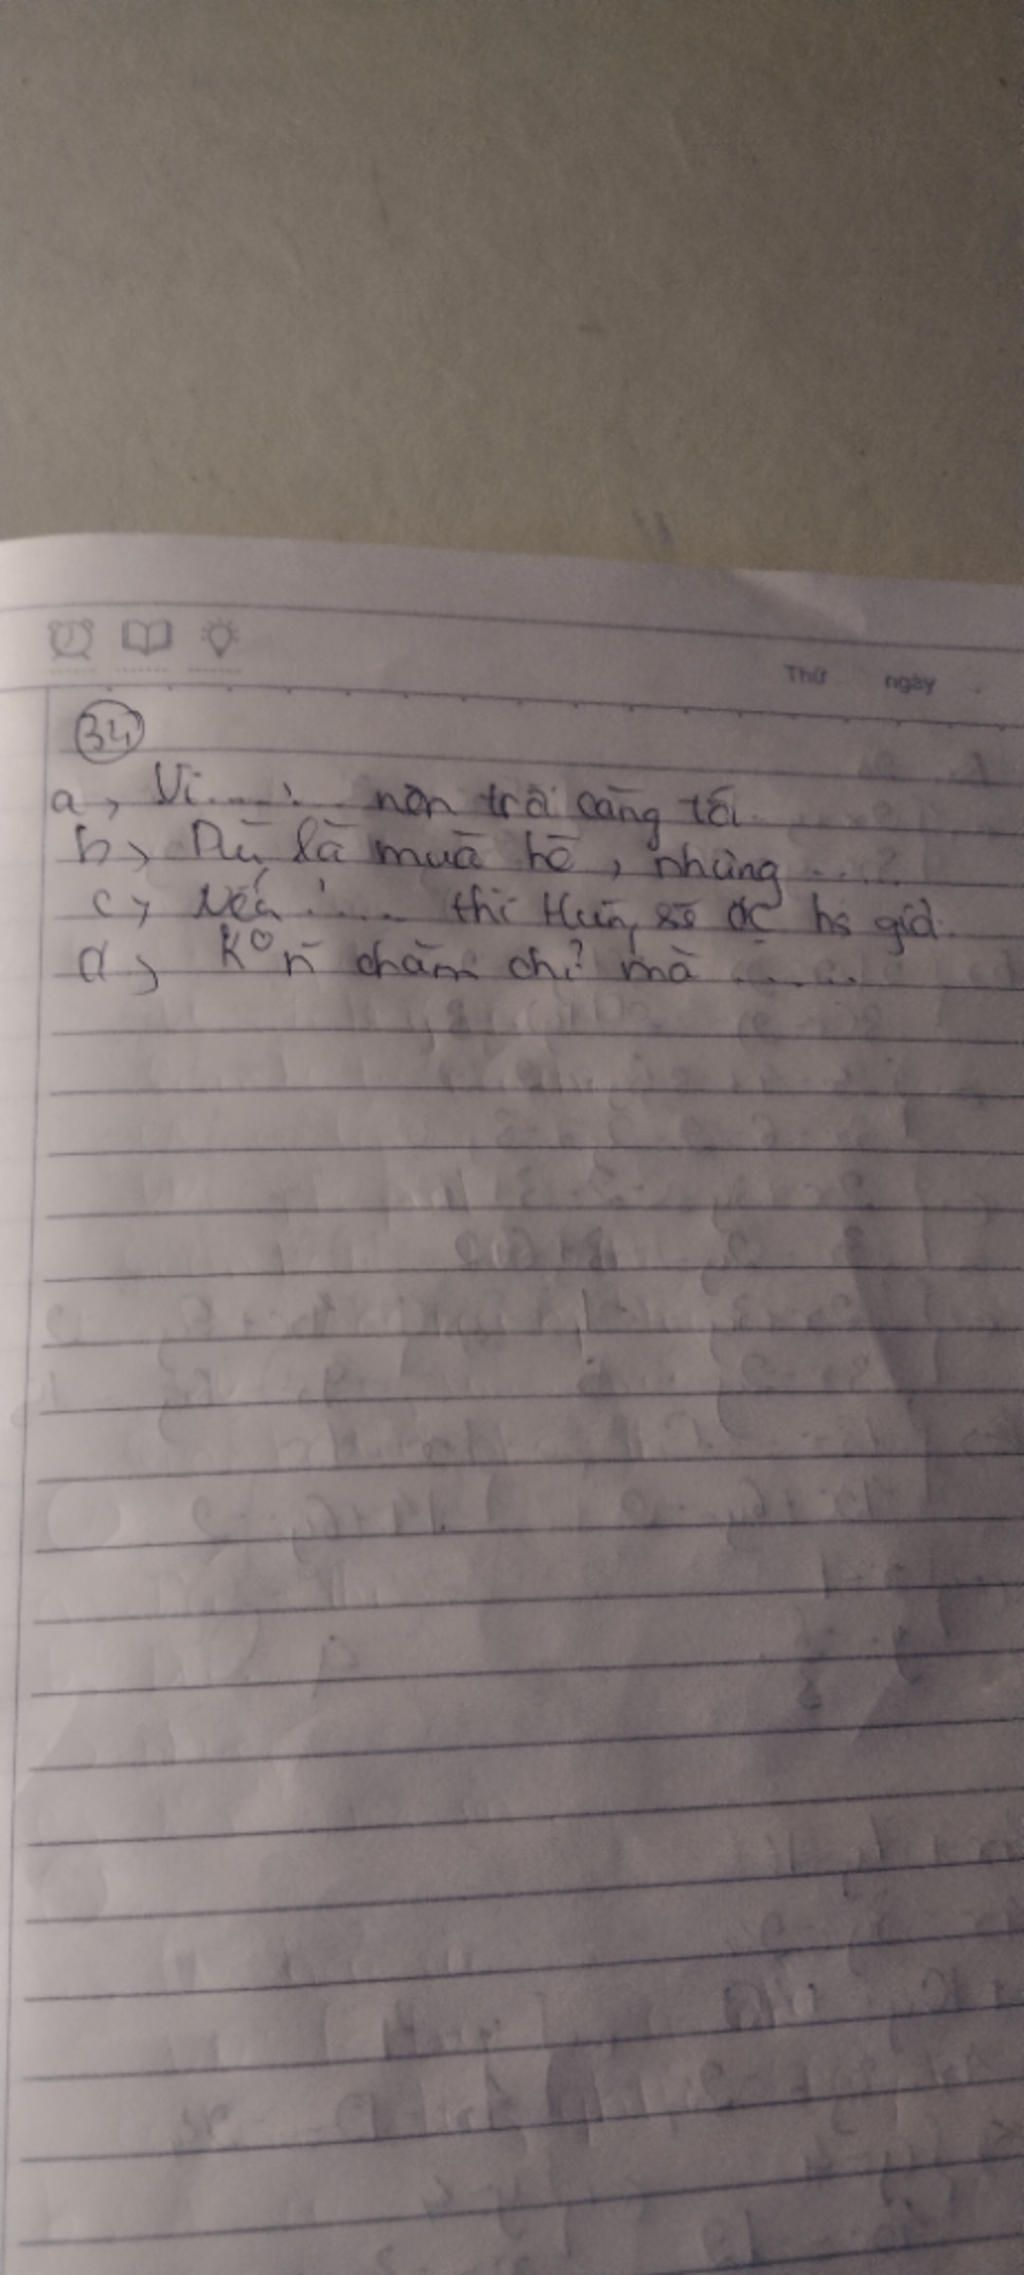 Thứ ngày
34
a, Vì ......... nên trời càng tối
b, Dù là mùa hè, nhưng ......
c, Nếu ....... thì Hùng sẽ đc hs giỏi.
d, chăm chỉ mà .......